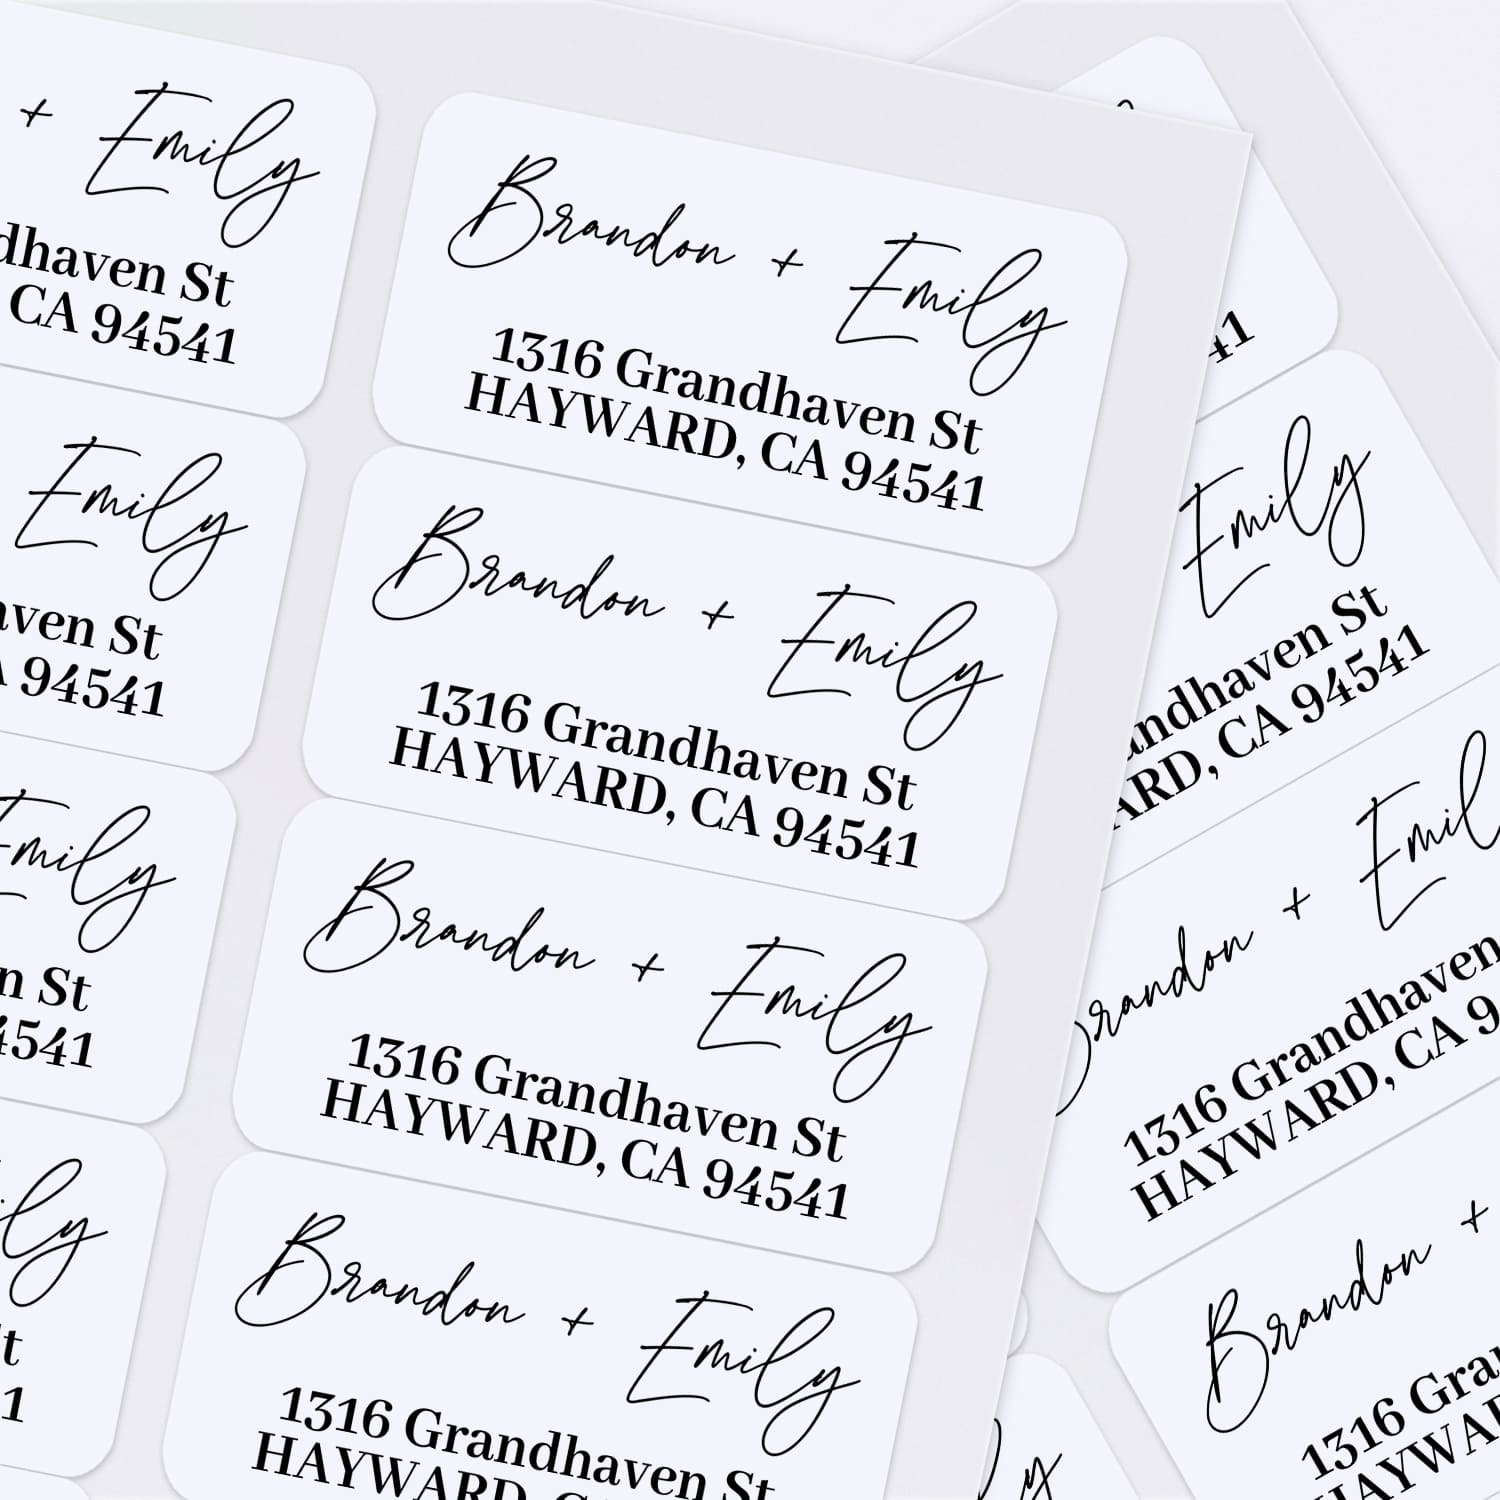 + Emily
dhaven St
CA 94541
Brandon + Emily
1316 Grandhaven St
HAYWARD, CA 94541
41
Emily
ven St
94541
Brandon + Emily
1316 Grandhaven St
HAYWARD, CA 94541
Emily
andhaven St
ARD, CA 94541
Emily
n St
4541
Brandon + Emily
1316 Grandhaven St
HAYWARD, CA 94541
randon + Emil
1316 Grandhaven
HAYWARD, CA 9
ily
t
1
Brandon + Emily
1316 Grandhaven St
HAYWARD, C
Brandon +
1316 Gra
HAYWA
y